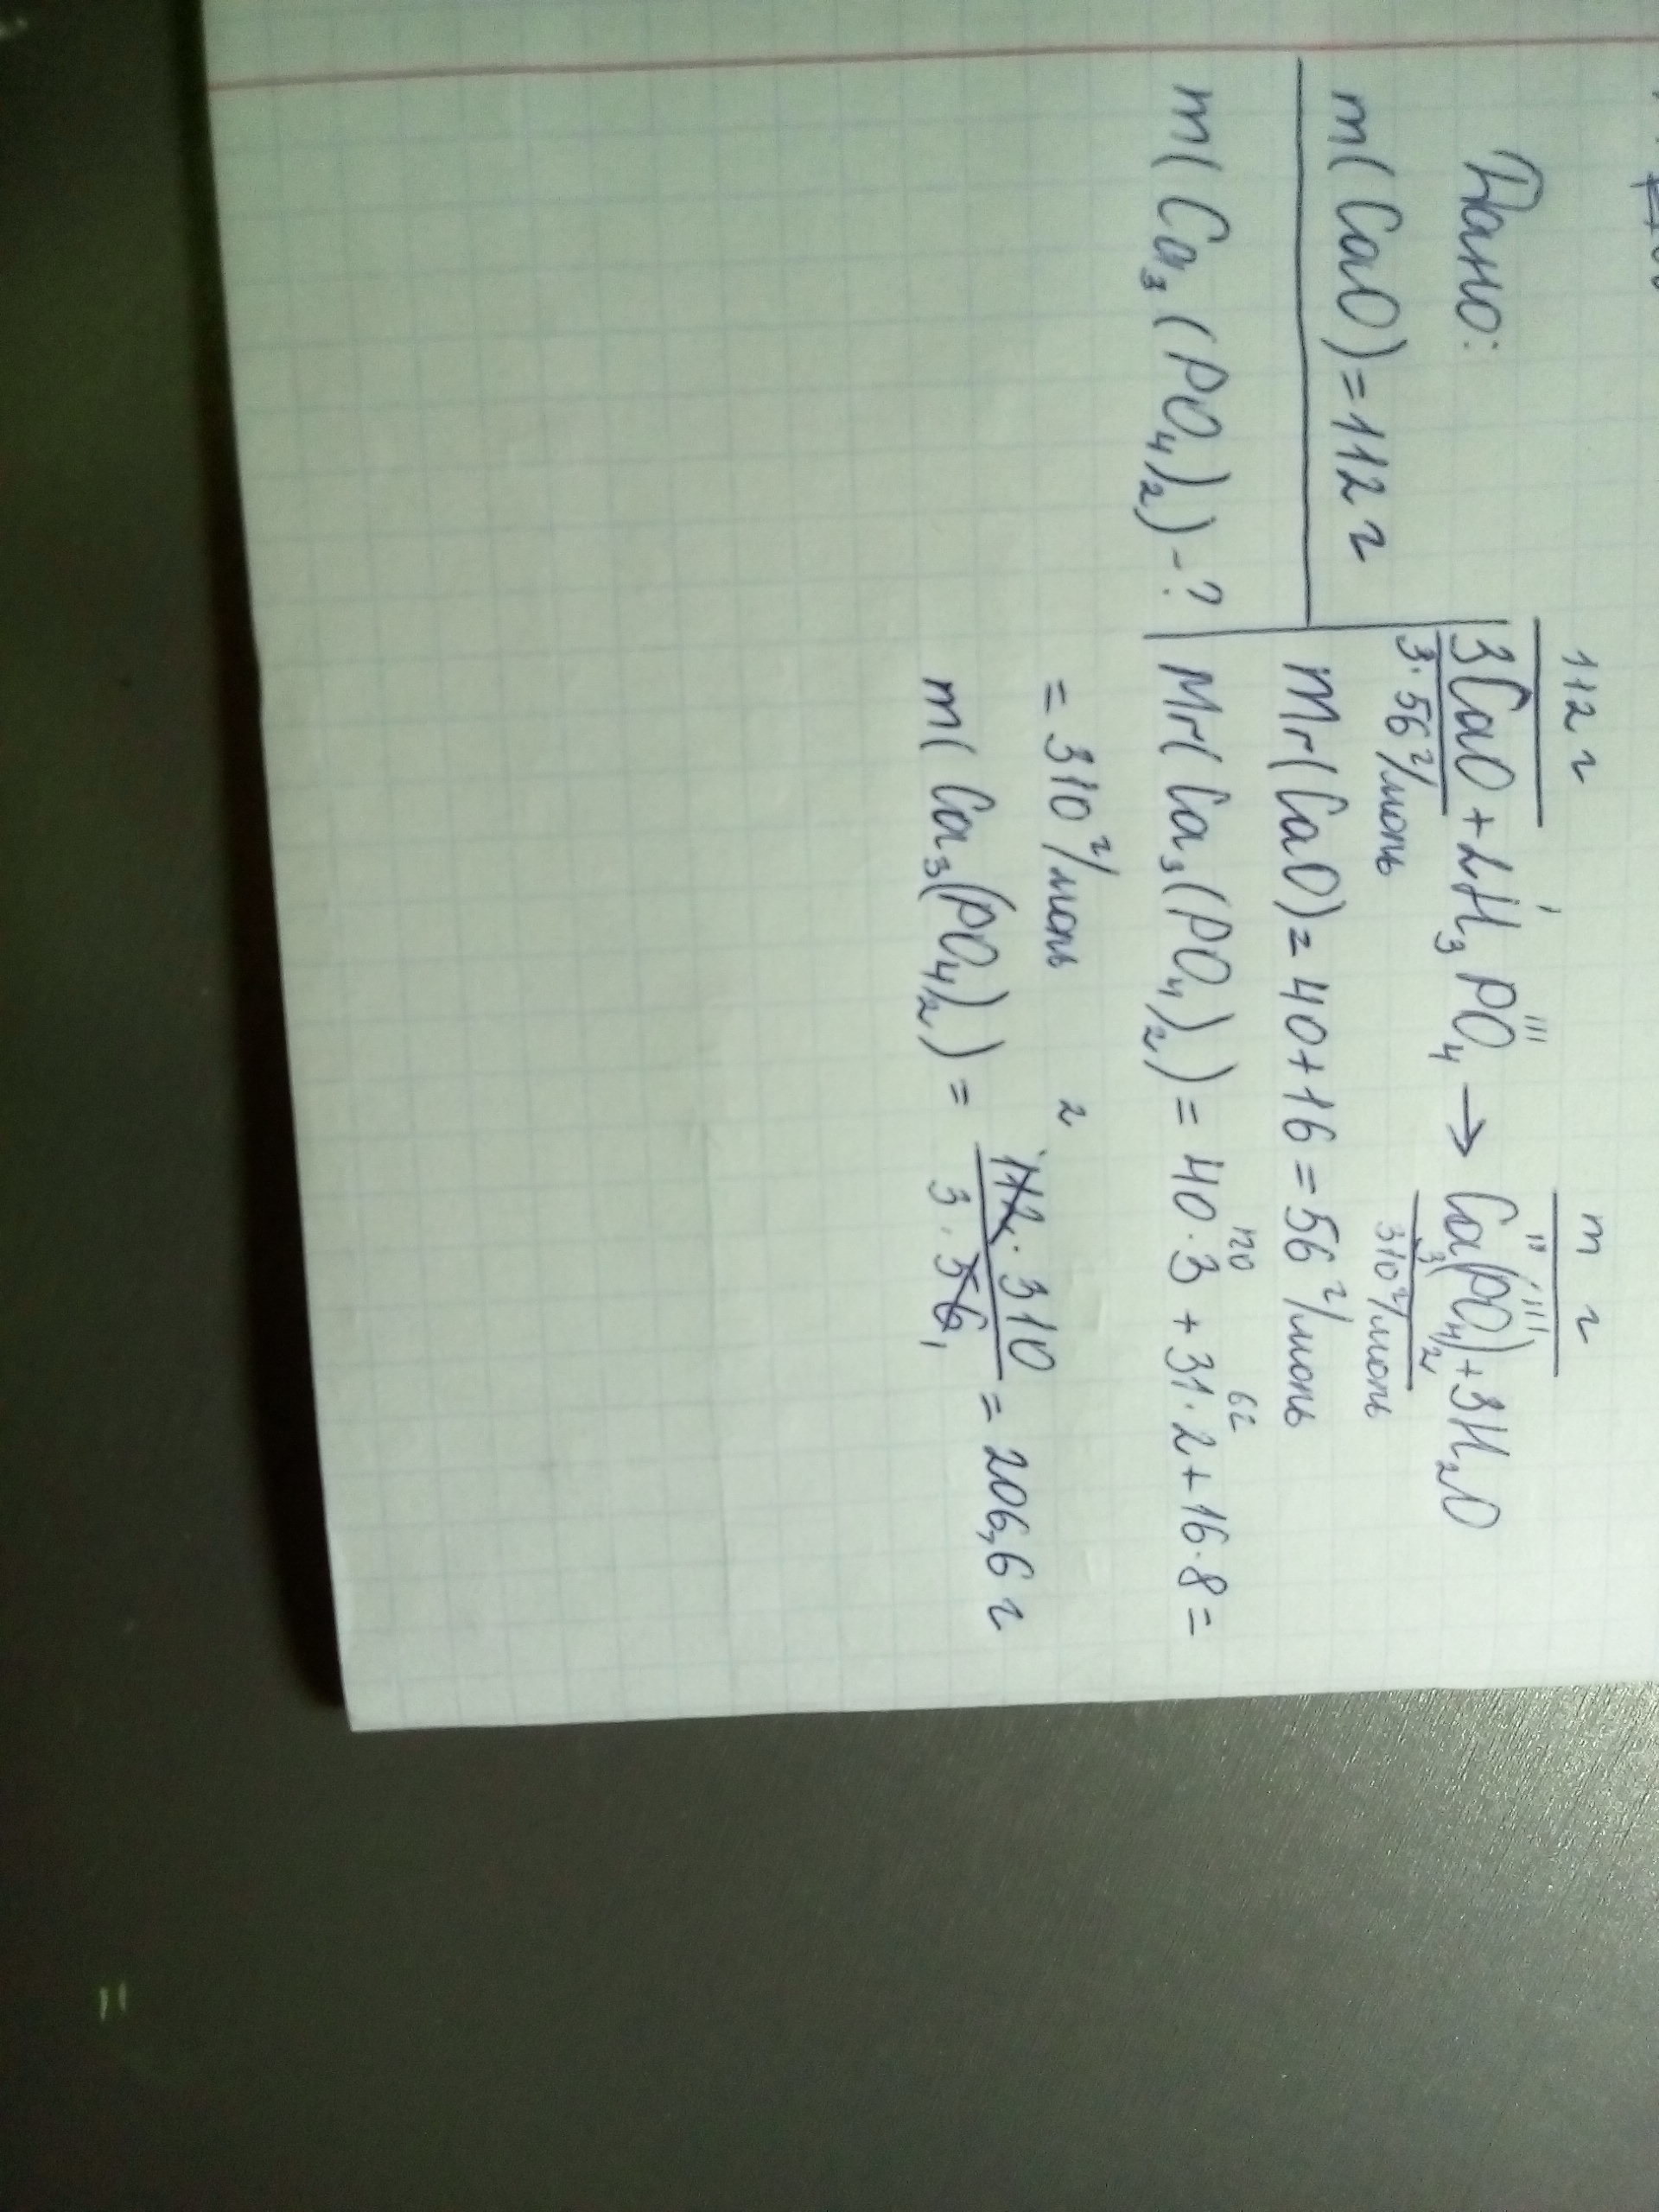 Дано:
m(CaO)=112 г
m(Ca₃(PO₄)₂)-?
112 г m г
3CaO + 2H₃PO₄ → Ca₃(PO₄)₂ + 3H₂O
I III II III
3·56 г/моль 310 г/моль
Mr(CaO)=40+16=56 г/моль
120 62
Mr(Ca₃(PO₄)₂)=40·3+31·2+16·8=
=310 г/моль
2
m(Ca₃(PO₄)₂) = 112·310 / 3·56 = 206,6 г
1